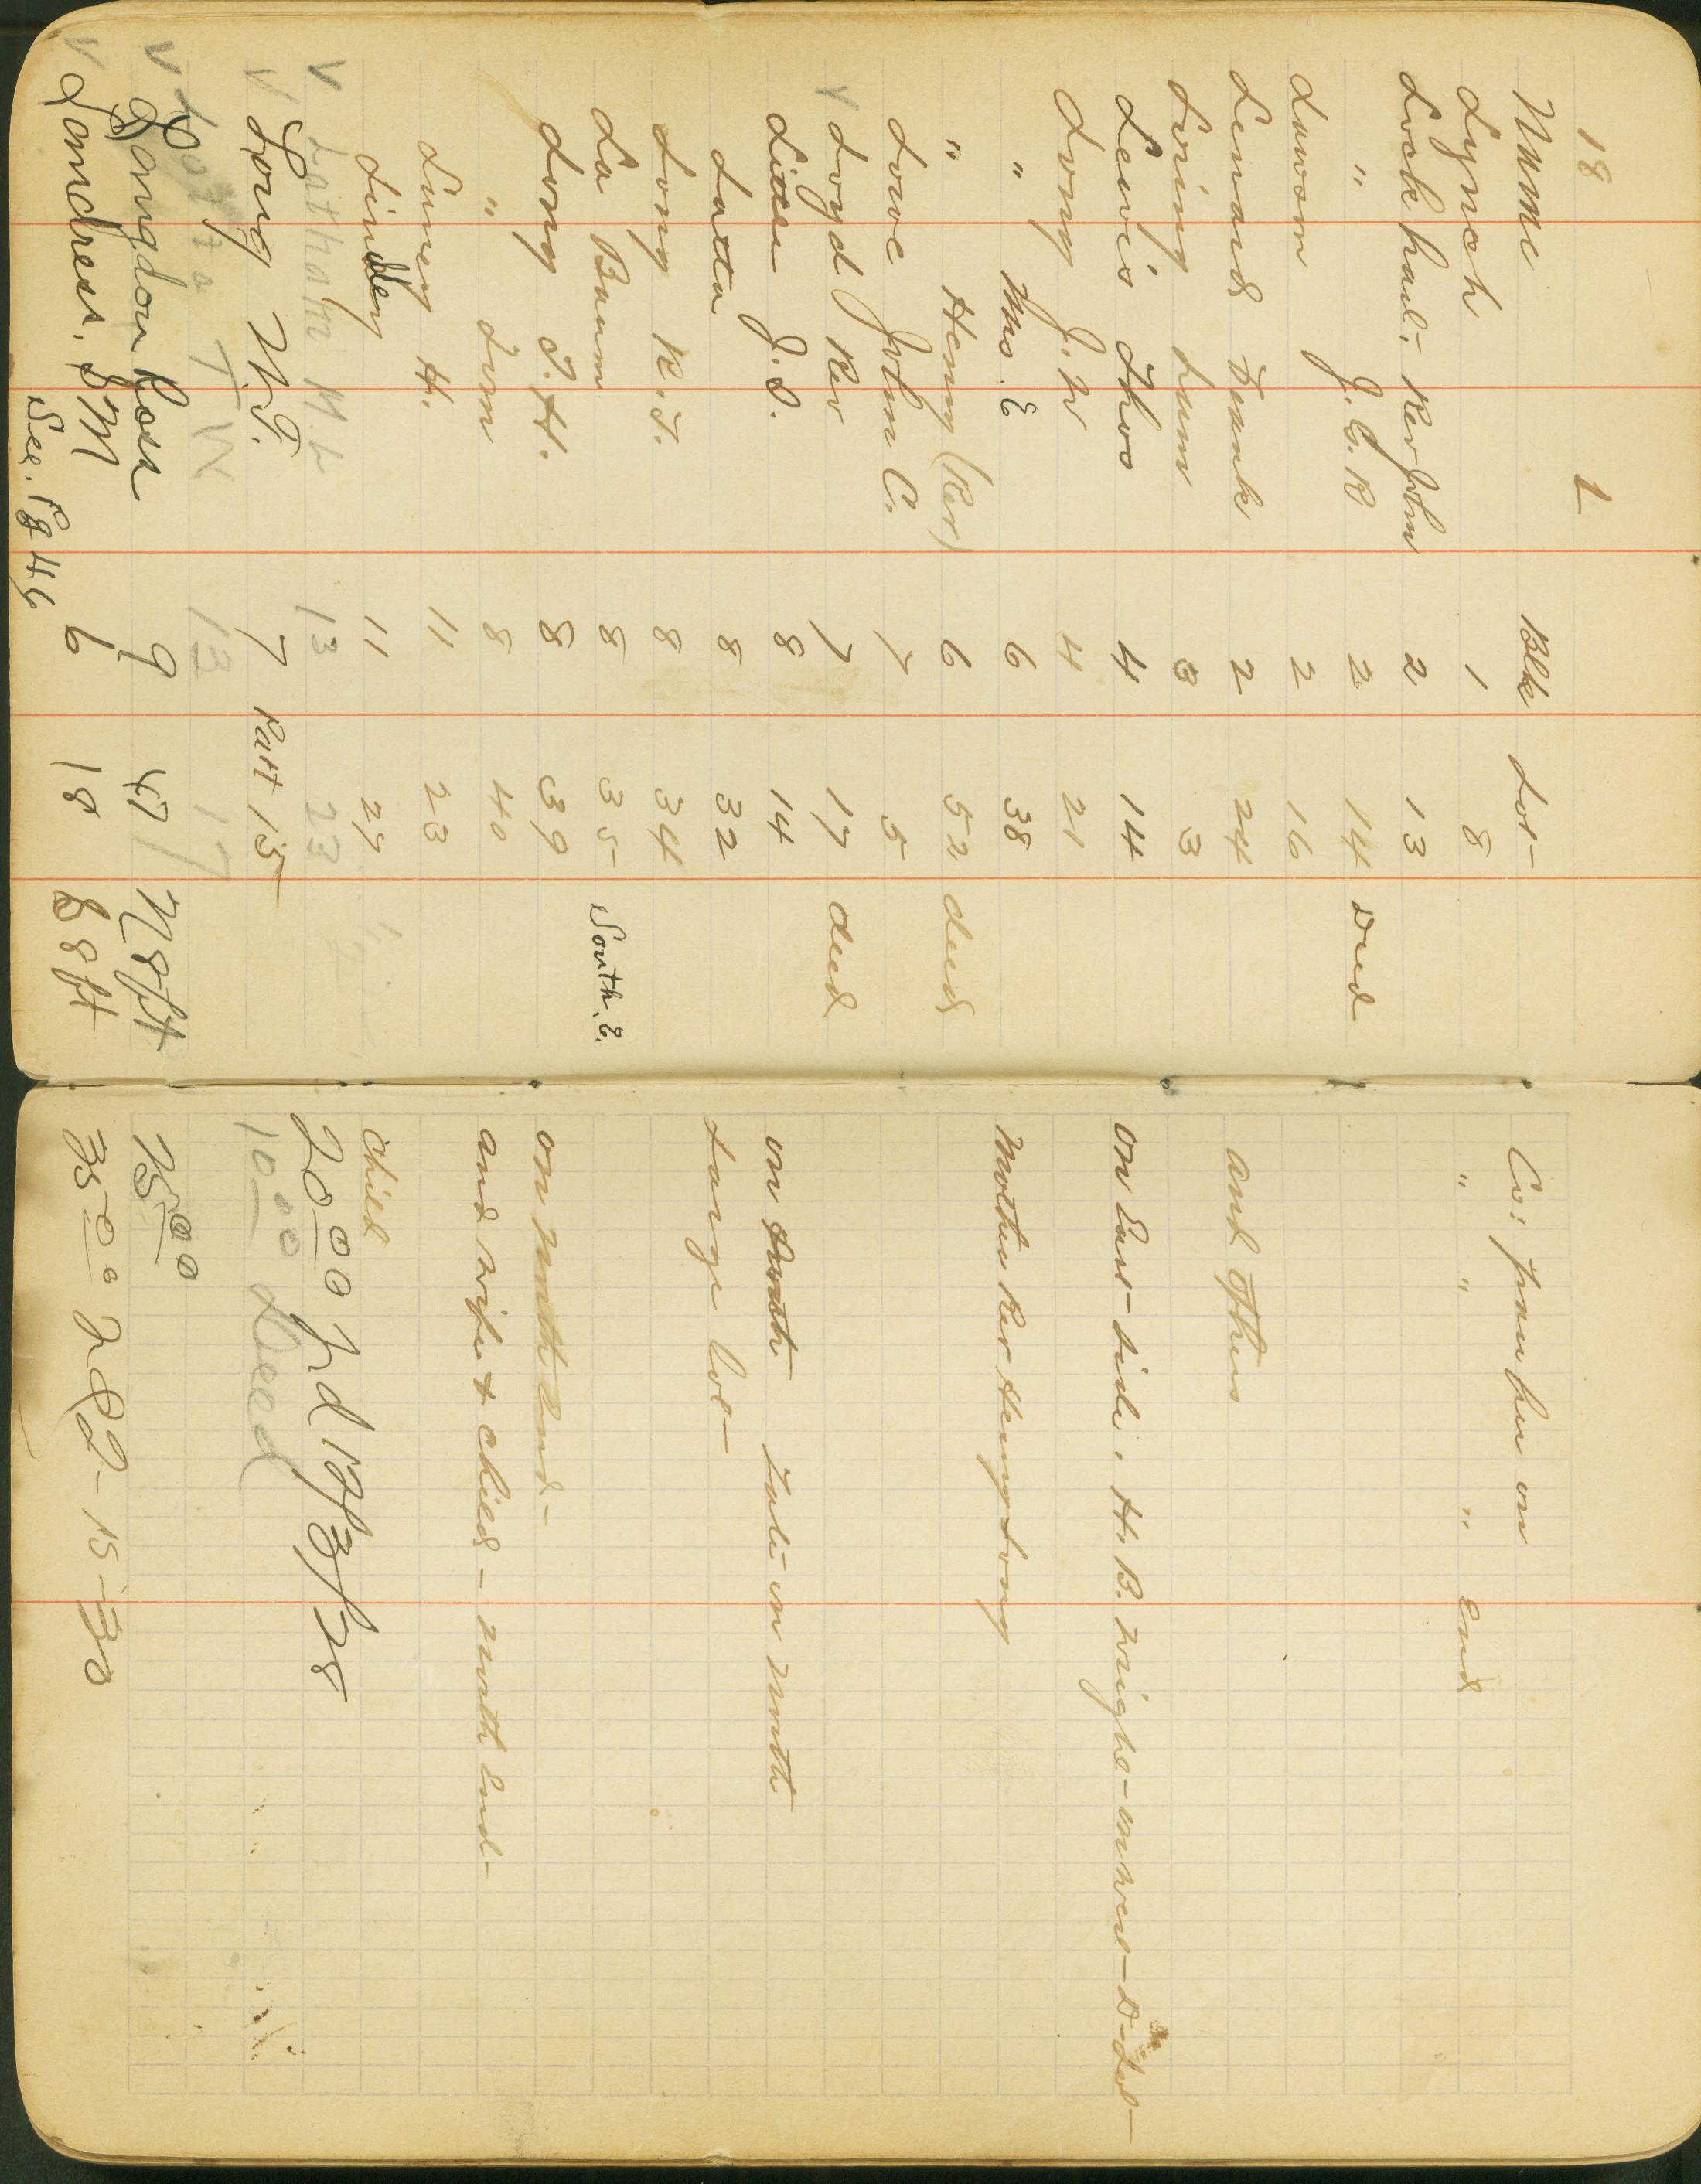 18 L
Name Blk Lot
Lynch 1 8
Lockhart Rev John 2 13
" J. G. B 2 14 Deed
Lawson 2 16
Lenard Frank 2 24
Loring 3 3
Lewis Thos 4 14
Long J. W 4 21
" Mrs. E 6 38
" Henry (Rev) 6 52 deed
Love John C. 7 5
V Loyd Rev 7 17 deed
J. S. 8 14
Latta 8 32
Long R. T. 8 34
La Baum 8 35 South. E.
Long T. H. 8 39
" Tom 8 40
H. 11 23
Lindley 11 27
V Latham M. L 13 23
V Long N. T. 7 Part 15
V Lotta T W 13 17
V Langdon Rosa 9 47 N 8 ft
V Landress. S M 6 18 S 8 ft
See. Pg 46
Co: on
" " " End
and Others
on East side. H. B. Wright on West Lot
Mother Rev Henry Long
on South on north
Large lot
on north End
and wife & child - north End
Child
20 00 pd 12/3/25
10 00 Deed
25 00
35 00 pd 2-15-30